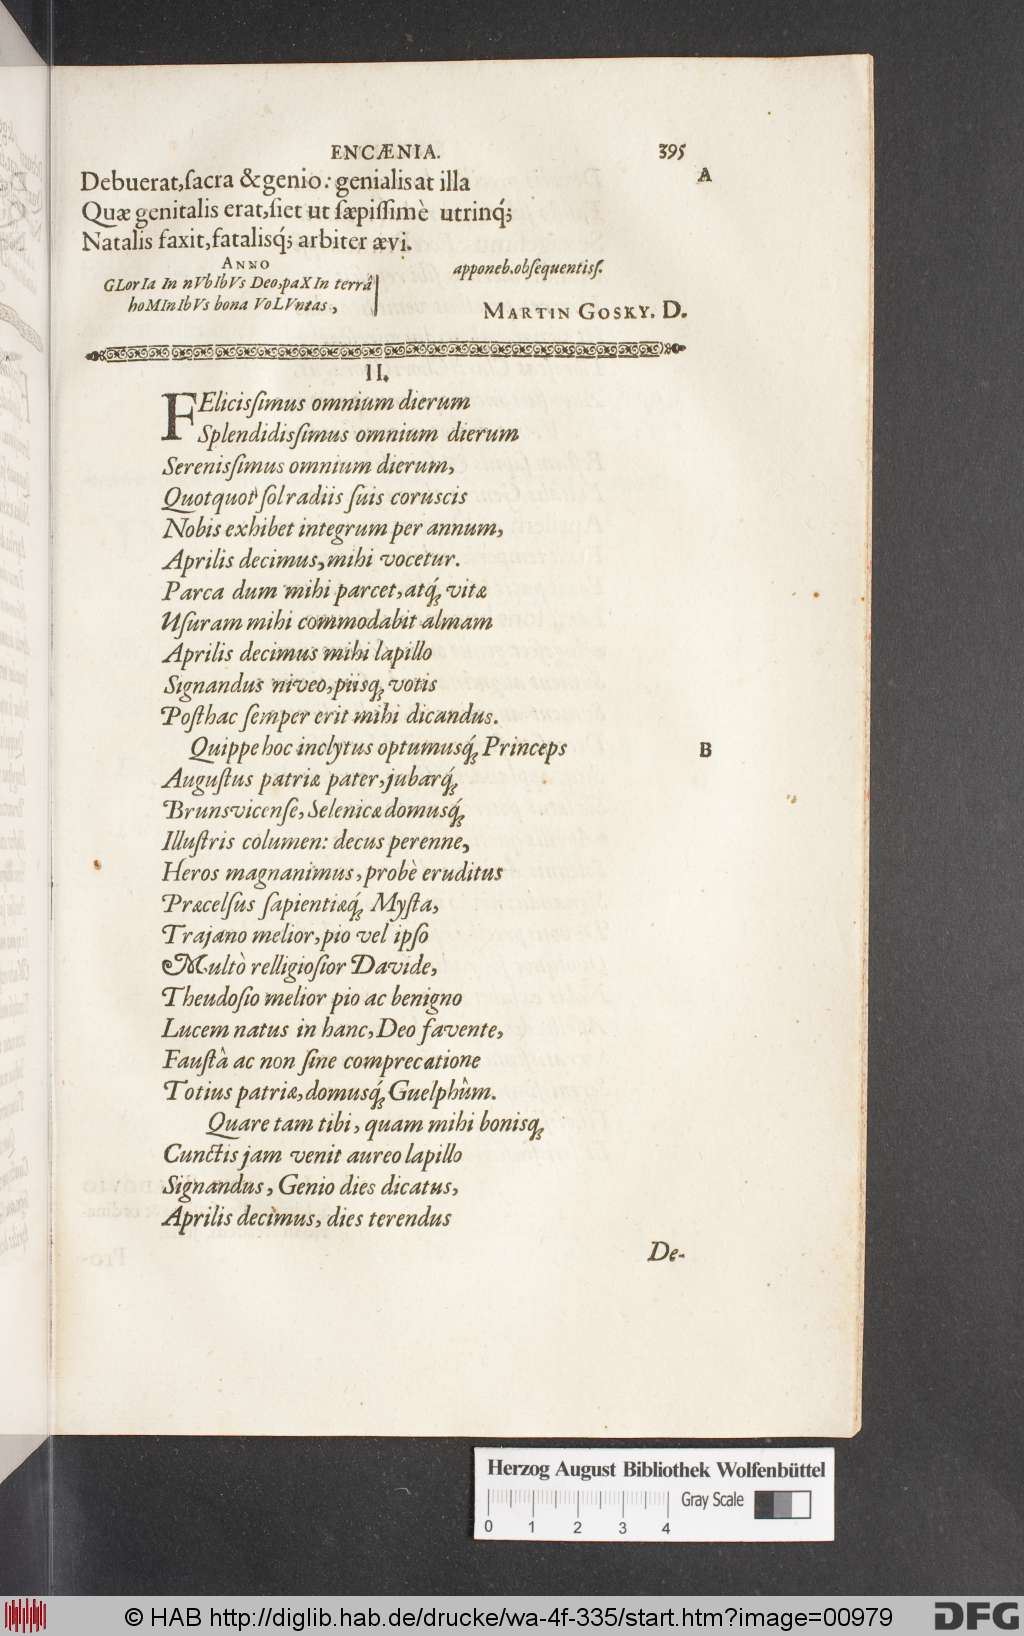 ENCÆNIA. 395
Debuerat,ſacra & genio: genialis at illa A
Quæ genitalis erat,fiet ut ſæpiſſimè utrinq́;
Natalis faxit,fatalisq́; arbiter ævi.
ANNO
GLorIa In nVbIbVs Deo,paXIn terrâ
hoMInIbVs bona VoLVntas,
apponeb.obſequentiſſ.
MARTIN GOSKY. D.
II.
FElicisſimus omnium dierum
Splendidisſimus omnium dierum
Serenisſimus omnium dierum,
Quotquot ſol radiis ſuis coruscis
Nobis exhibet integrum per annum,
Aprilis decimus, mihi vocetur.
Parca dum mihi parcet, atq́; vitæ
Uſuram mihi commodabit almam
Aprilis decimus mihi lapillo
Signandus niveo, piisq; votis
Poſthac ſemper erit mihi dicandus.
Quippe hoc inclytus optumusq́; Princeps B
Auguſtus patriæ pater, jubarq́;
Brunsvicenſe, Selenicæ domusq́;
Illuſtris columen: decus perenne,
Heros magnanimus, probè eruditus
Præcelſus ſapientiæq́; Myſta,
Trajano melior, pio vel ipſo
Multò relligioſior Davide,
Theudoſio melior pio ac benigno
Lucem natus in hanc, Deo favente,
Fauſtâ ac non ſine comprecatione
Totius patriæ, domusq́; Guelphûm.
Quare tam tibi, quam mihi bonisq;
Cunctis jam venit aureo lapillo
Signandus, Genio dies dicatus,
Aprilis decimus, dies terendus
De-
Herzog August Bibliothek Wolfenbüttel
Gray Scale
0 1 2 3 4
© HAB http://diglib.hab.de/drucke/wa-4f-335/start.htm?image=00979
DFG